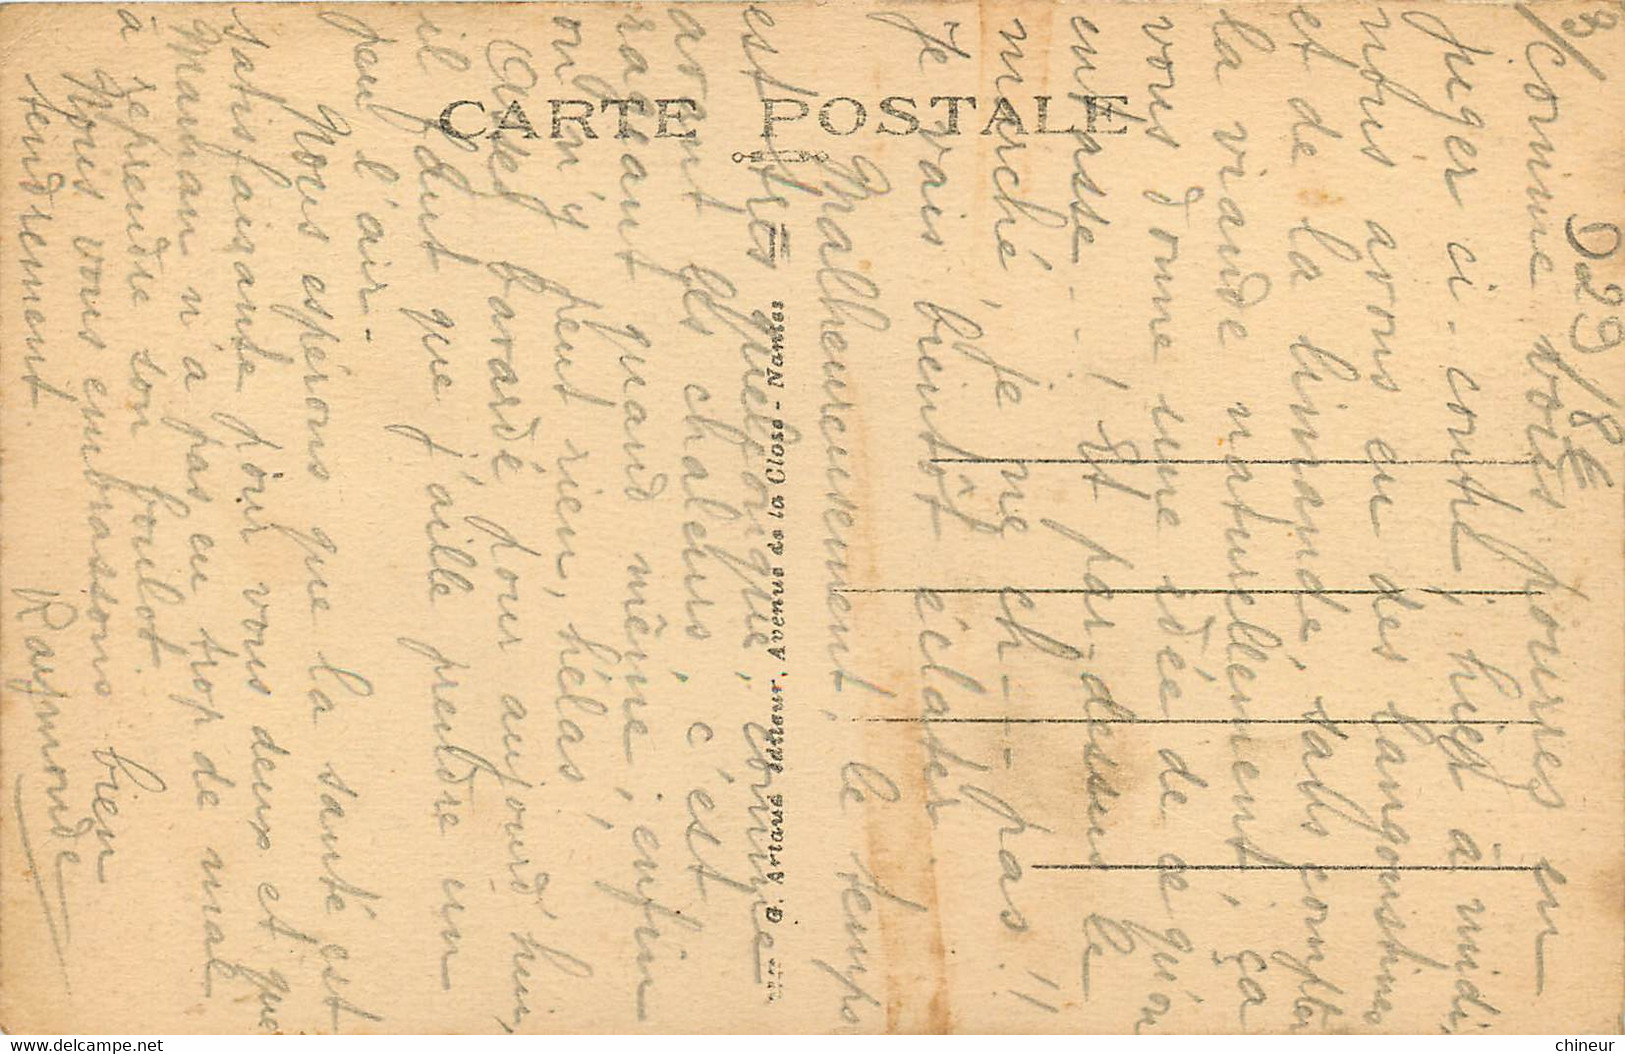 3/ Comme vous pourrez en
juger ci-contre, hier à midi,
nous avons eu des langoustines
et de la limande, sans compter
la viande naturellement, ça
vous donne une idée de ce qu'on
entasse - ! Et par-dessus le
marché, je me ch--- pas !!
Je vais bientôt éclater.
Malheureusement, le temps
est très quelconque, comme
avant les chaleurs, c'est
rageant quand même, enfin
on n'y peut rien, hélas !
Assez bavardé pour aujourd'hui,
il faut que j'aille prendre un
peu l'air.
Nous espérons que la santé est
satisfaisante pour vous deux et que
Maman n'a pas eu trop de mal
à reprendre son boulot.
Nous vous embrassons bien
tendrement.
Raymonde
CARTE POSTALE
G. Artaud éditeur, Avenue de la Close - Nantes
D29/8E
chineur
www.delcampe.net